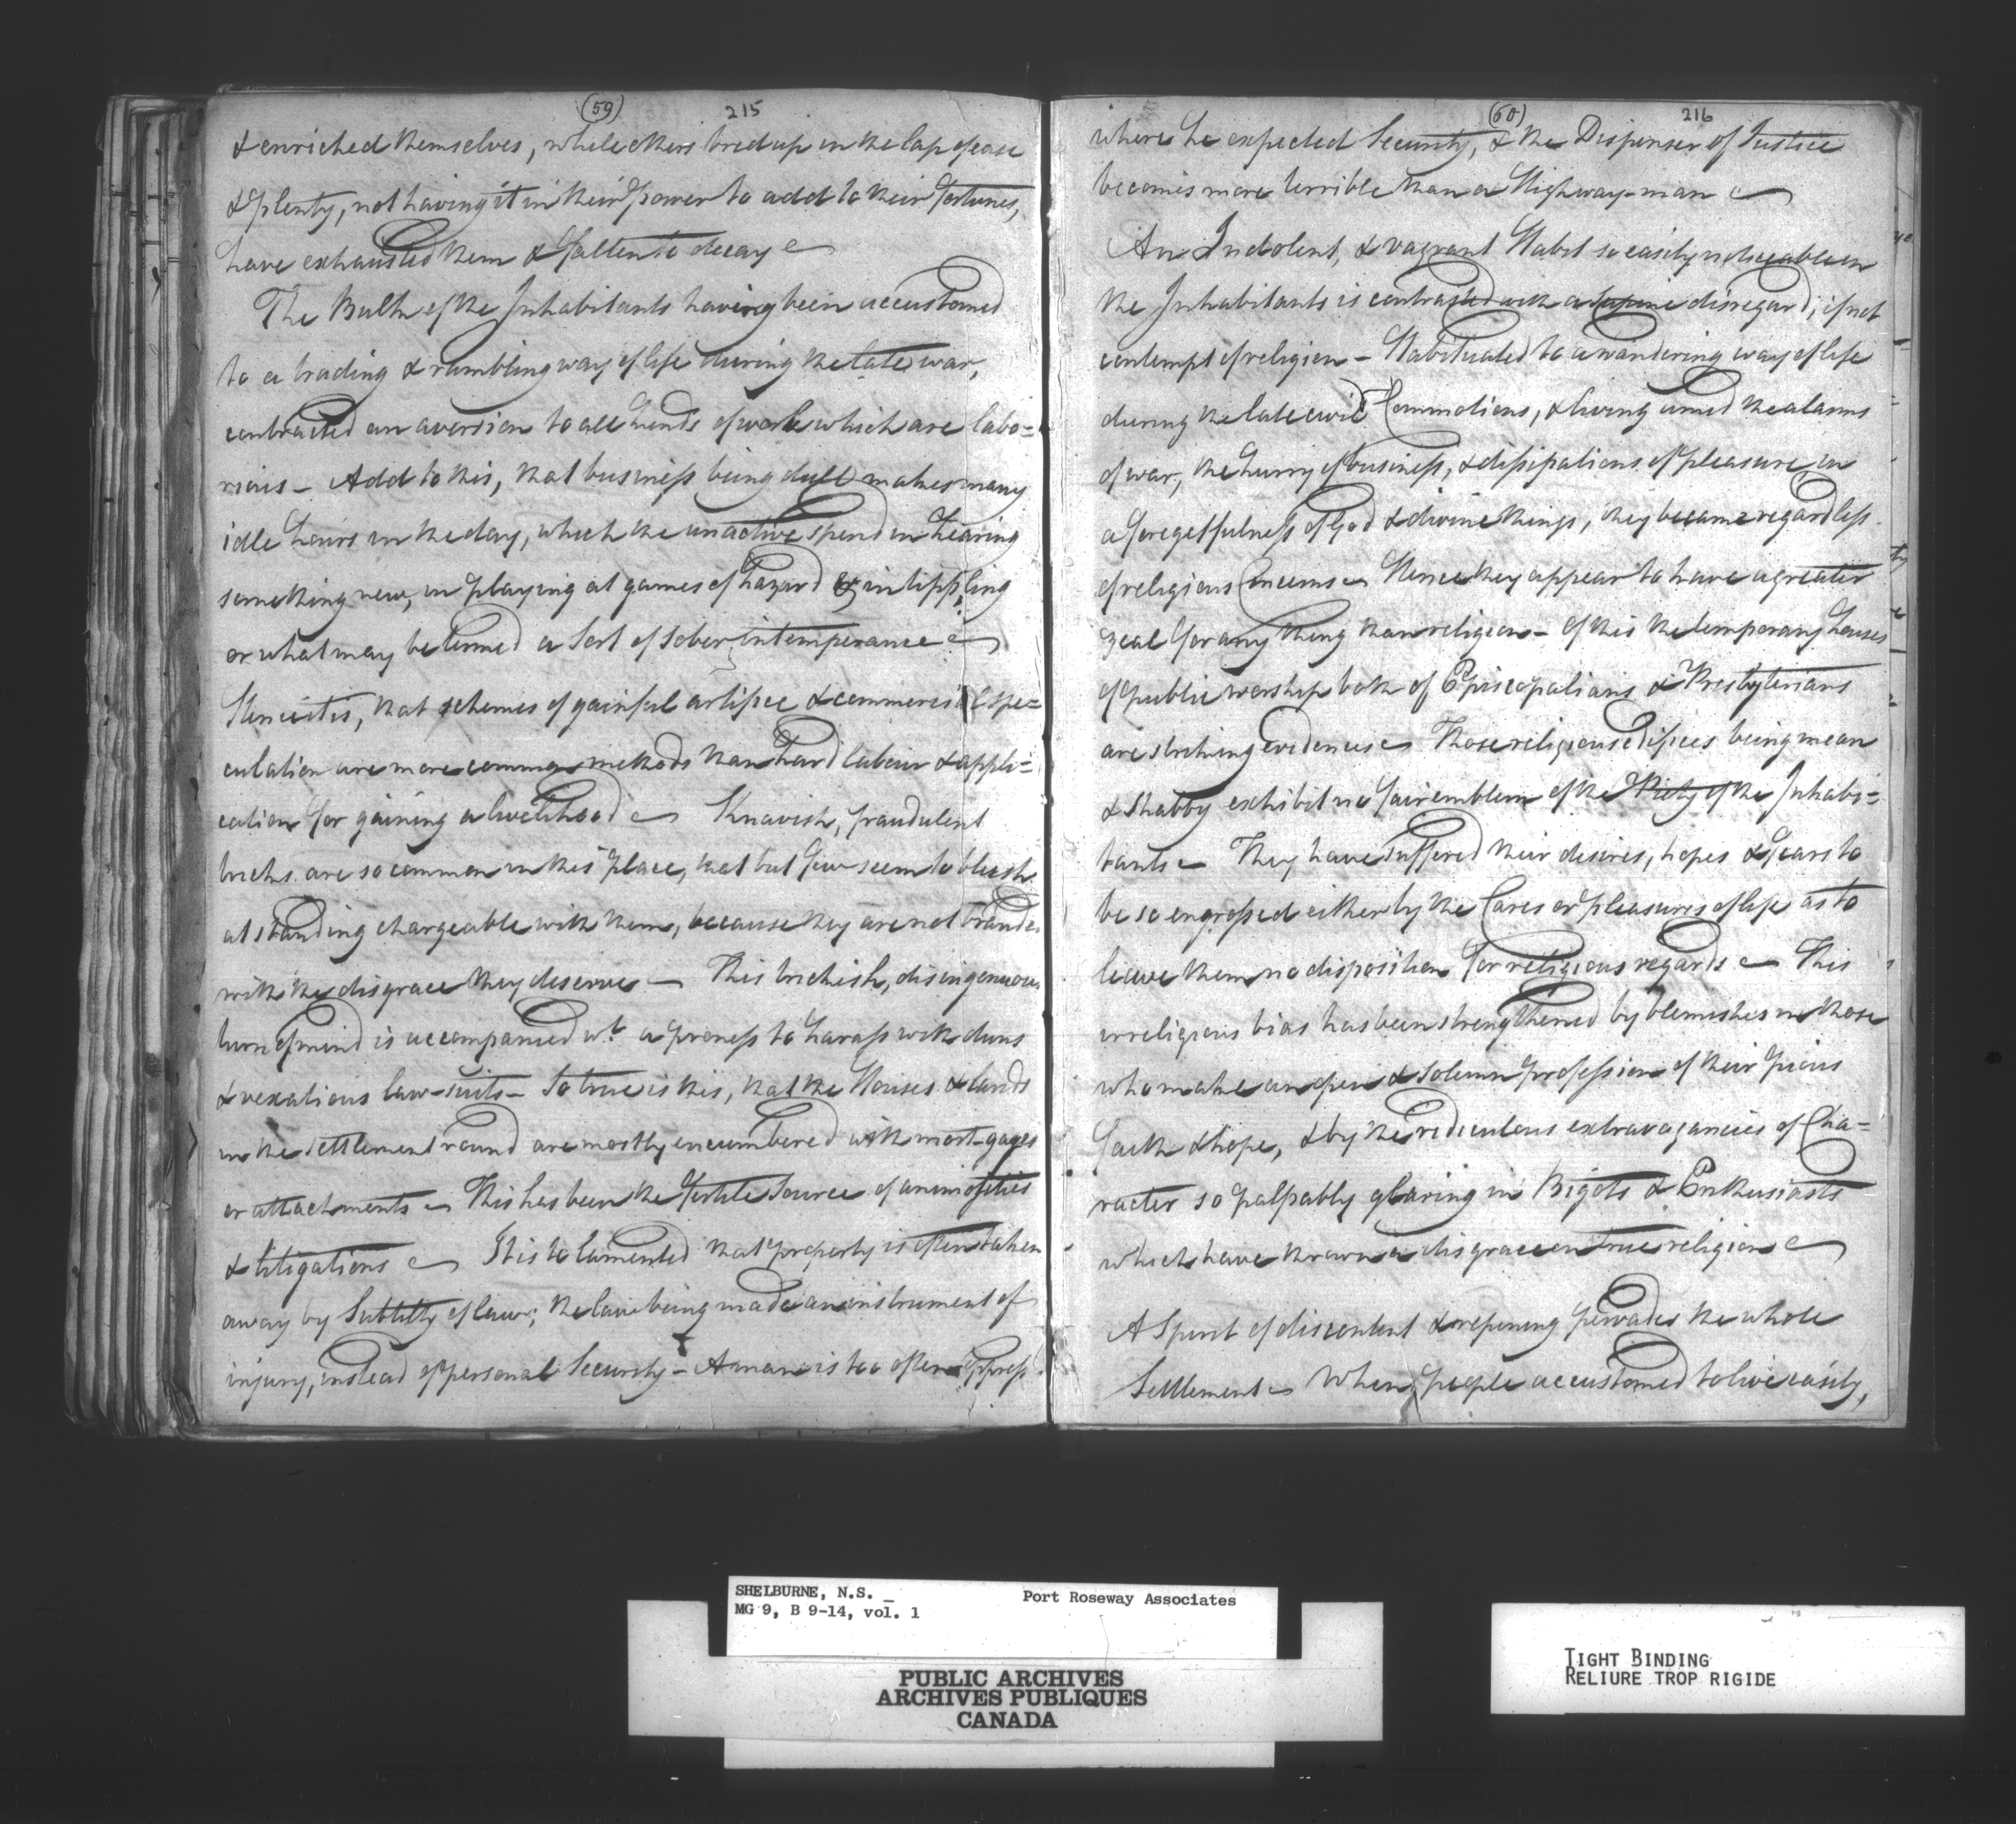 (59) 215
& enriched themselves, while others bred up in the lap of ease
& plenty, not having it in their power to add to their fortunes,
have exhausted them & fallen to decay
The Bulk of the Inhabitants having been accustomed
to a trading & rambling way of life during the late war,
contracted an aversion to all kinds of work which are labo=
rious - Add to this, that business being dull makes many
idle hours in the day, which the unactive spend in hearing
something new, in playing at games of hazard & in tippling
or what may be termed a sort of sober intemperance
Hence it is, that schemes of gainful artifice & commercial spe=
culation are more common methods than hard labour & appli=
cation for gaining a livelihood Knavish, fraudulent
tricks are so common in this place, that but few seem to blush
at standing chargeable with them, because they are not brande
with the disgrace they deserve - This trickish, disingenuous
turn of mind is accompanied wt. a proness to harass with duns
& vexatious law-suits - So true is this, that the Houses & lands
in the settlement round are mostly encumbered with mort-gages
or attachments - This has been the fertile source of animosities
& litigations It is to lamented that property is often taken
away by Subtilty of law; the law being made an instrument of
injury, instead of personal Security - A man is too often oppress
(60) 216
where he expected Security, & the Dispenser of Justice
becomes more terrible than a Highway-man
An Indolent, & vagrant Habit so easily noticeable in
the Inhabitants is contrasted with a supine disregard, if not
contempt of religion - Habituated to a wandering way of life
during the late civil Commotions, & living amid the alarms
of war, the hurry of business, & dissipations of pleasure, in
a forgetfulness of God & divine things, they became regardless
of religious Concerns - Hence they appear to have a greater
zeal for any thing than religion - Of this the temporary houses
of public worship both of Episcopalians & Presbyterians
are striking evidences - Those religious edifices being mean
& shabby exhibit no fair emblem of the Piety of the Inhabi=
tants - They have suffered their desires, hopes & fears to
be so engrossed either by the Cares or pleasures of life as to
leave them no disposition for religious regards - This
irreligious bias has been strengthened by blemishes in those
who make an open & solemn profession of their pious
faith & hope, & by the rediculous extravagancies of Cha=
racter so palpably glaring in Bigots & Enthusiasts
which have thrown a disgrace on true religion
A Spirit of discontent & repining pervades the whole
Settlement - When people accustomed to live easily,
SHELBURNE, N.S. Port Roseway Associates
MG 9, B 9-14, vol. 1
PUBLIC ARCHIVES
ARCHIVES PUBLIQUES
CANADA
TIGHT BINDING
RELIURE TROP RIGIDE